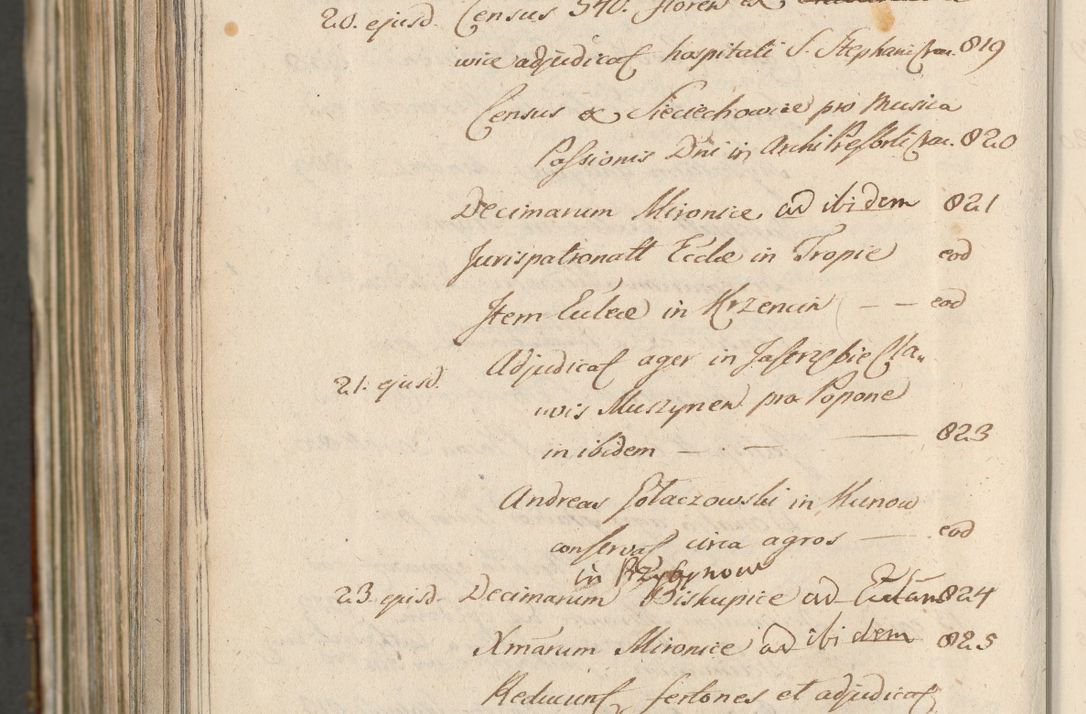 20. ejusd. Census 540. floren ex
wice adjudicat hospitali S. Stephani Crac. 819
Census ex Sieciechowice pro Musica
Passionis Dni in ArchiPresbrli Crac. 820
Decimarum Mironice ad ibidem 821
Jurispatronatt Eccle in Tropie eod
Item Eccleae in Krzencin — — eod
Adjudicat ager in Jastrzebie Cla
21. ejusd. wis Muszynen pro Popone
in ibidem — — 823
Andreas Gołaczowski in Kunow
conservat circa agros — eod
in Brzezynow
23. ejusd. Decimarum Biskupice ad 824
Xmarum Mironice ad ibidem 825
Reducunt fertones et adjudicat